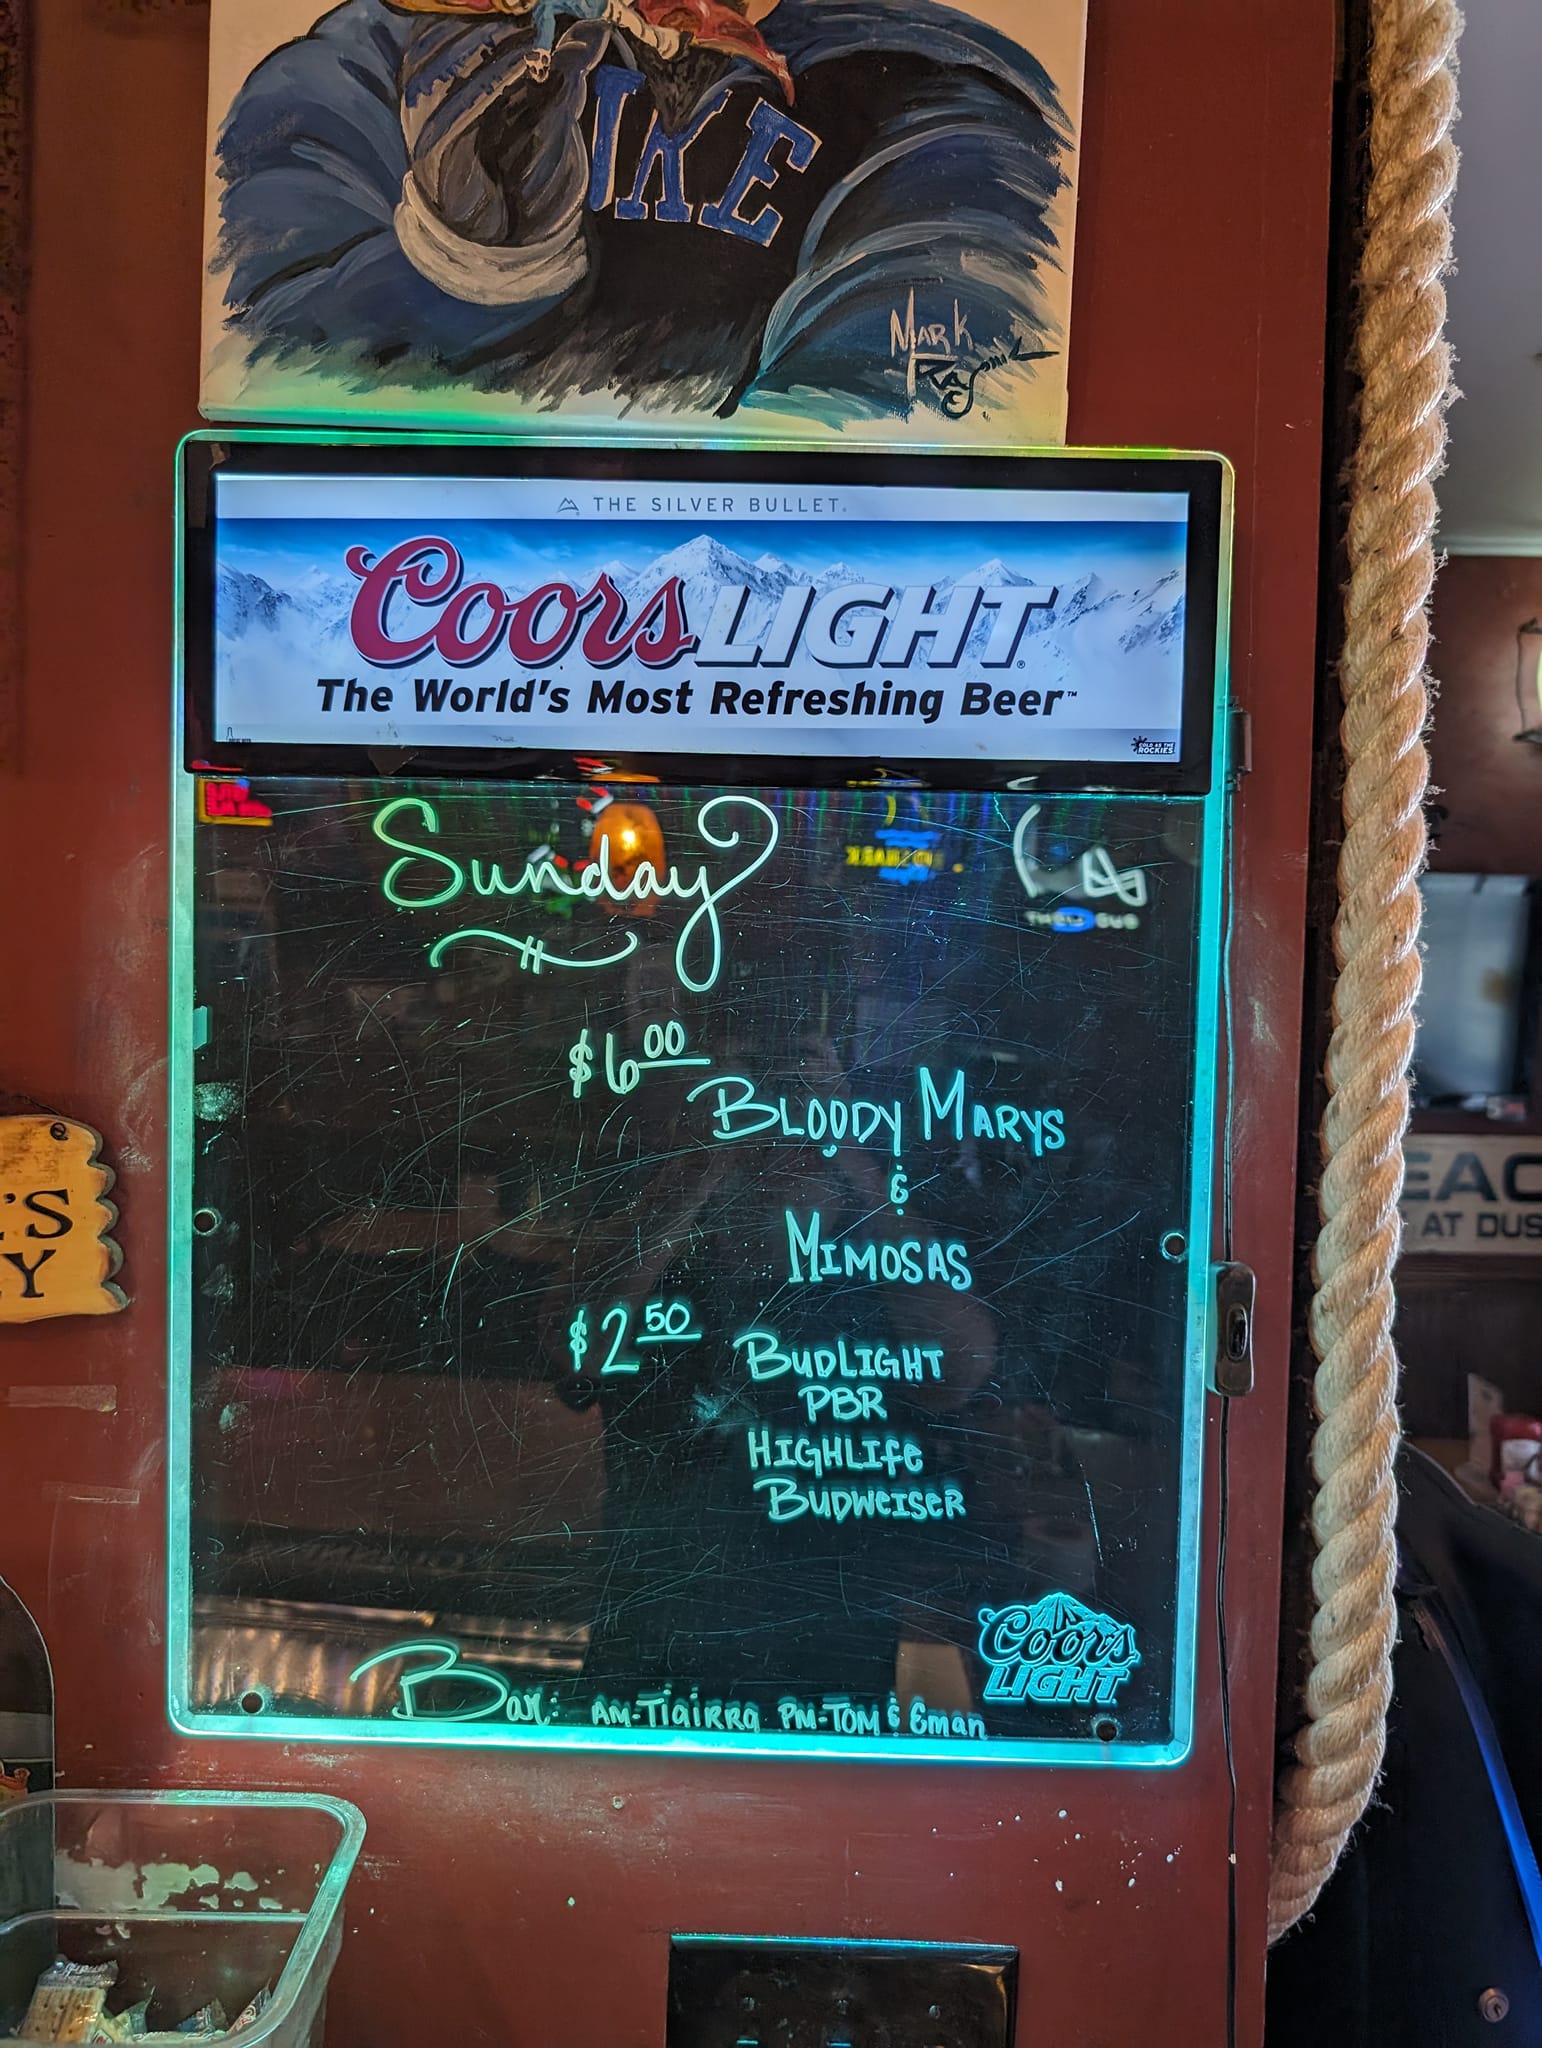 UKE
MARK
RAY
THE SILVER BULLET.
Coors LIGHT
The World's Most Refreshing Beer™
COLD AS THE
ROCKIES
Sunday
$6.00
BLOODY MARYS
&
MIMOSAS
$2.50
BUDLIGHT
PBR
HIGHLIfe
BUDWeISeR
Coors
LIGHT
Bar: AM-TIaiRRa PM-TOM & Eman
'S
Y
EAC
AT DUS